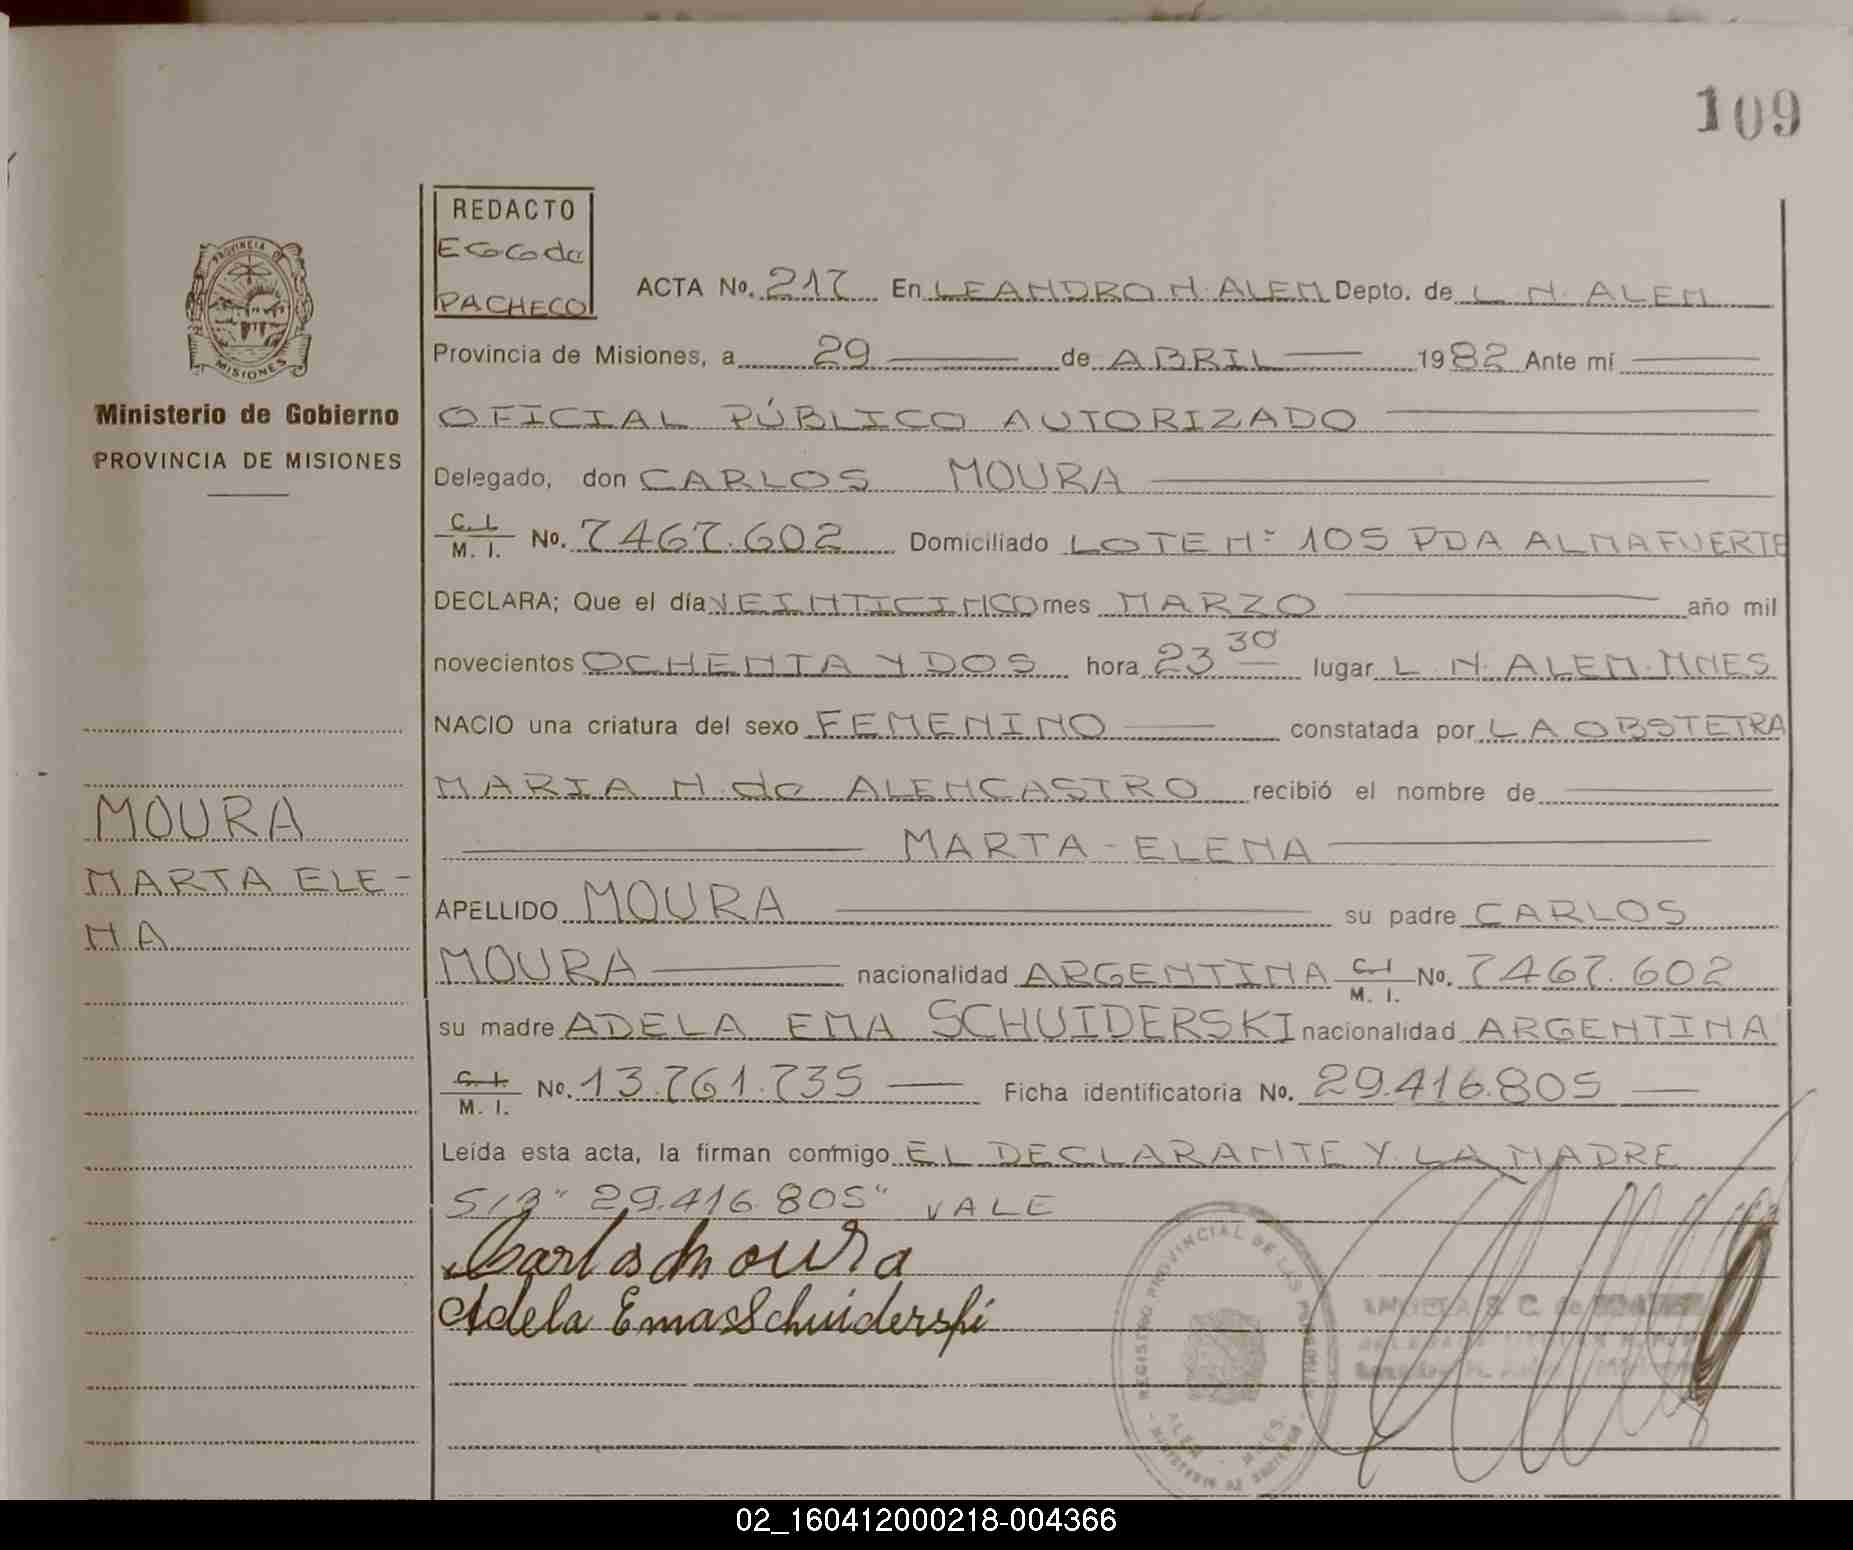 109
REDACTO
PACHECO
ACTA No. 217 En LEANDRO N. ALEM Depto. de L. N. ALEM
Provincia de Misiones, a 29 de ABRIL 1982 Ante mí
OFICIAL PÚBLICO AUTORIZADO
Delegado, don CARLOS MOURA
C. I. M. I. No. 7467.602 Domiciliado LOTE Nº 105 PDA ALMAFUERTE
DECLARA; Que el día VEINTICINCO mes MARZO año mil
novecientos OCHENTA Y DOS hora 23 30 lugar L. N. ALEM. MNES
NACIO una criatura del sexo FEMENINO constatada por LA OBSTETRA
MARIA N. de ALENCASTRO recibió el nombre de
MARTA - ELENA
APELLIDO MOURA su padre CARLOS
MOURA nacionalidad ARGENTINA C. I. M. I. No. 7467.602
su madre ADELA EMA SCHUIDERSKI nacionalidad ARGENTINA
C. I. M. I. No. 13.761.735 Ficha identificatoria No. 29.416.805
Leída esta acta, la firman conmigo EL DECLARANTE Y LA MADRE
S/B "29.416.805" VALE
Carlos Moura
Adela Ema Schuiderski
PROVINCIA
MISIONES
Ministerio de Gobierno
PROVINCIA DE MISIONES
MOURA
MARTA ELE-
NA
REGISTRO PROVINCIAL DE LAS PERSONAS
ALEM - MNES.
02_160412000218-004366